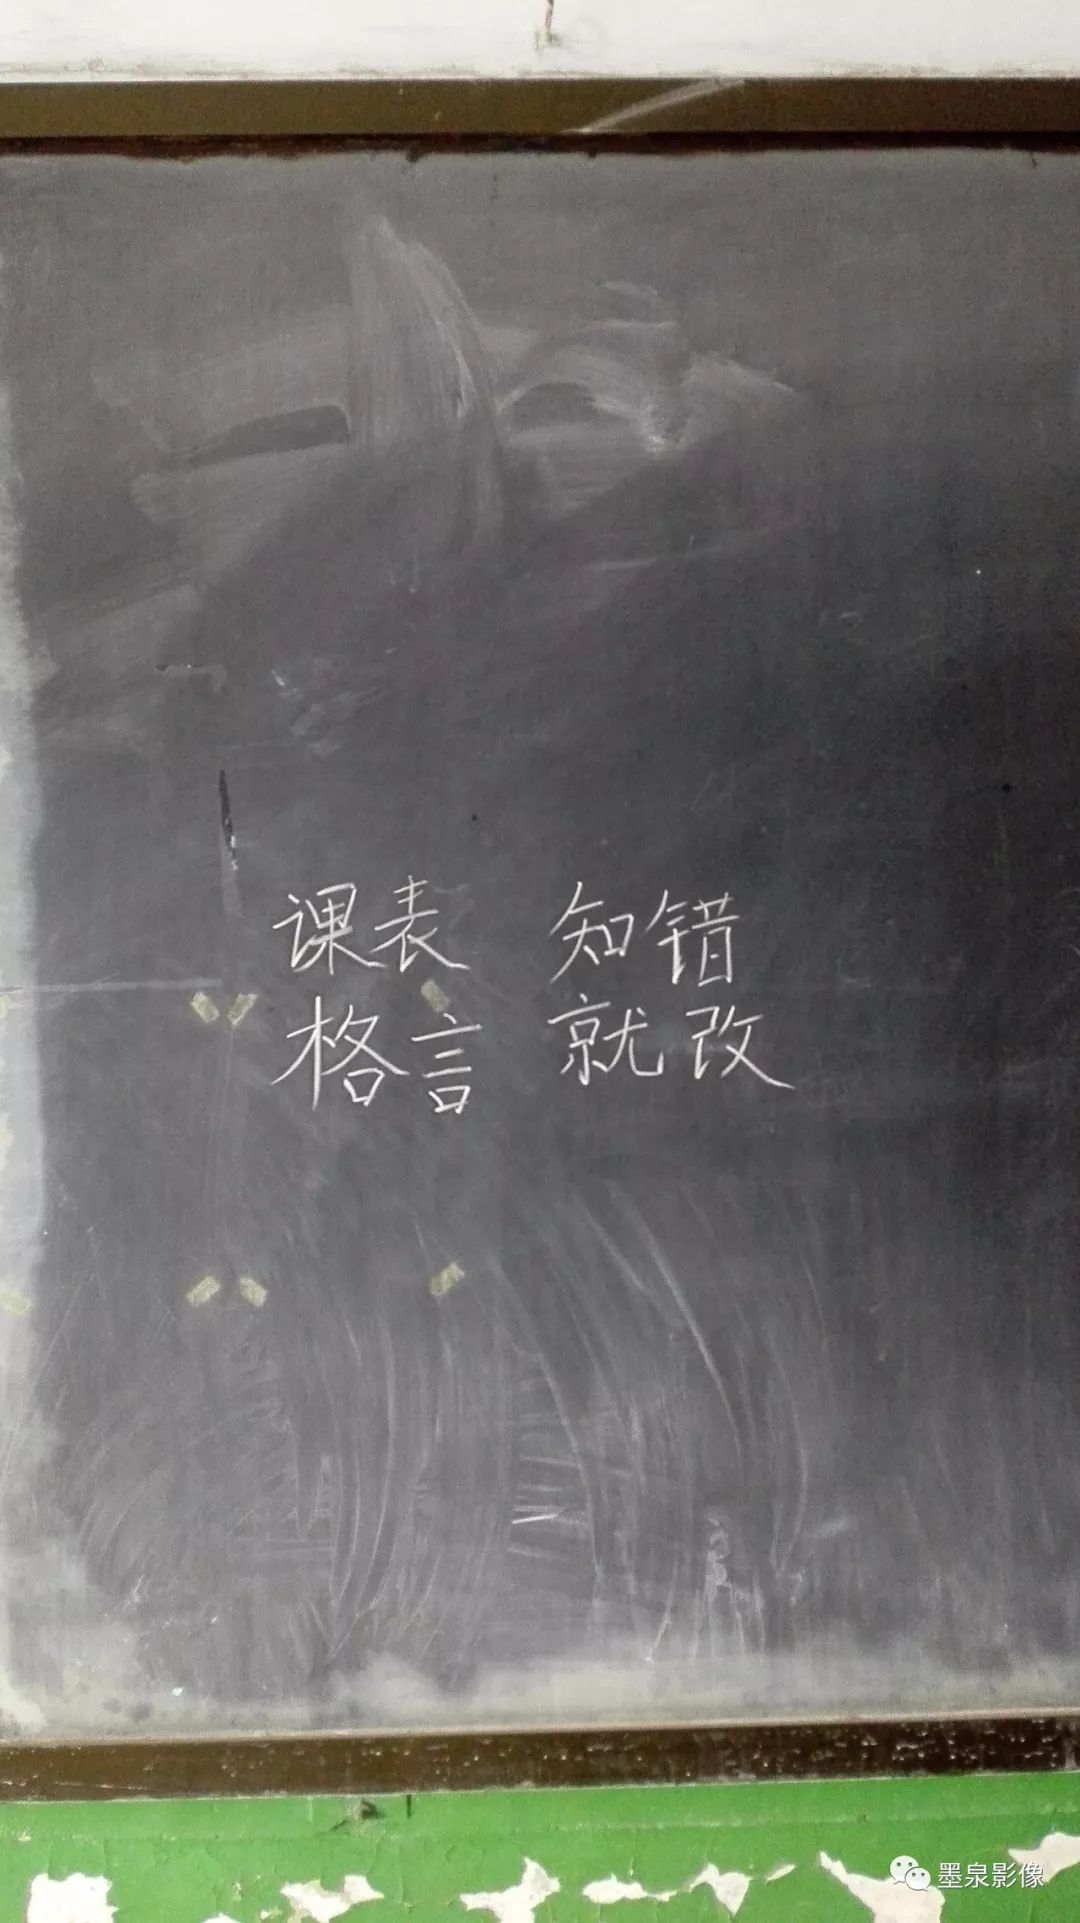 课表 知错
格言 就改
墨泉影像